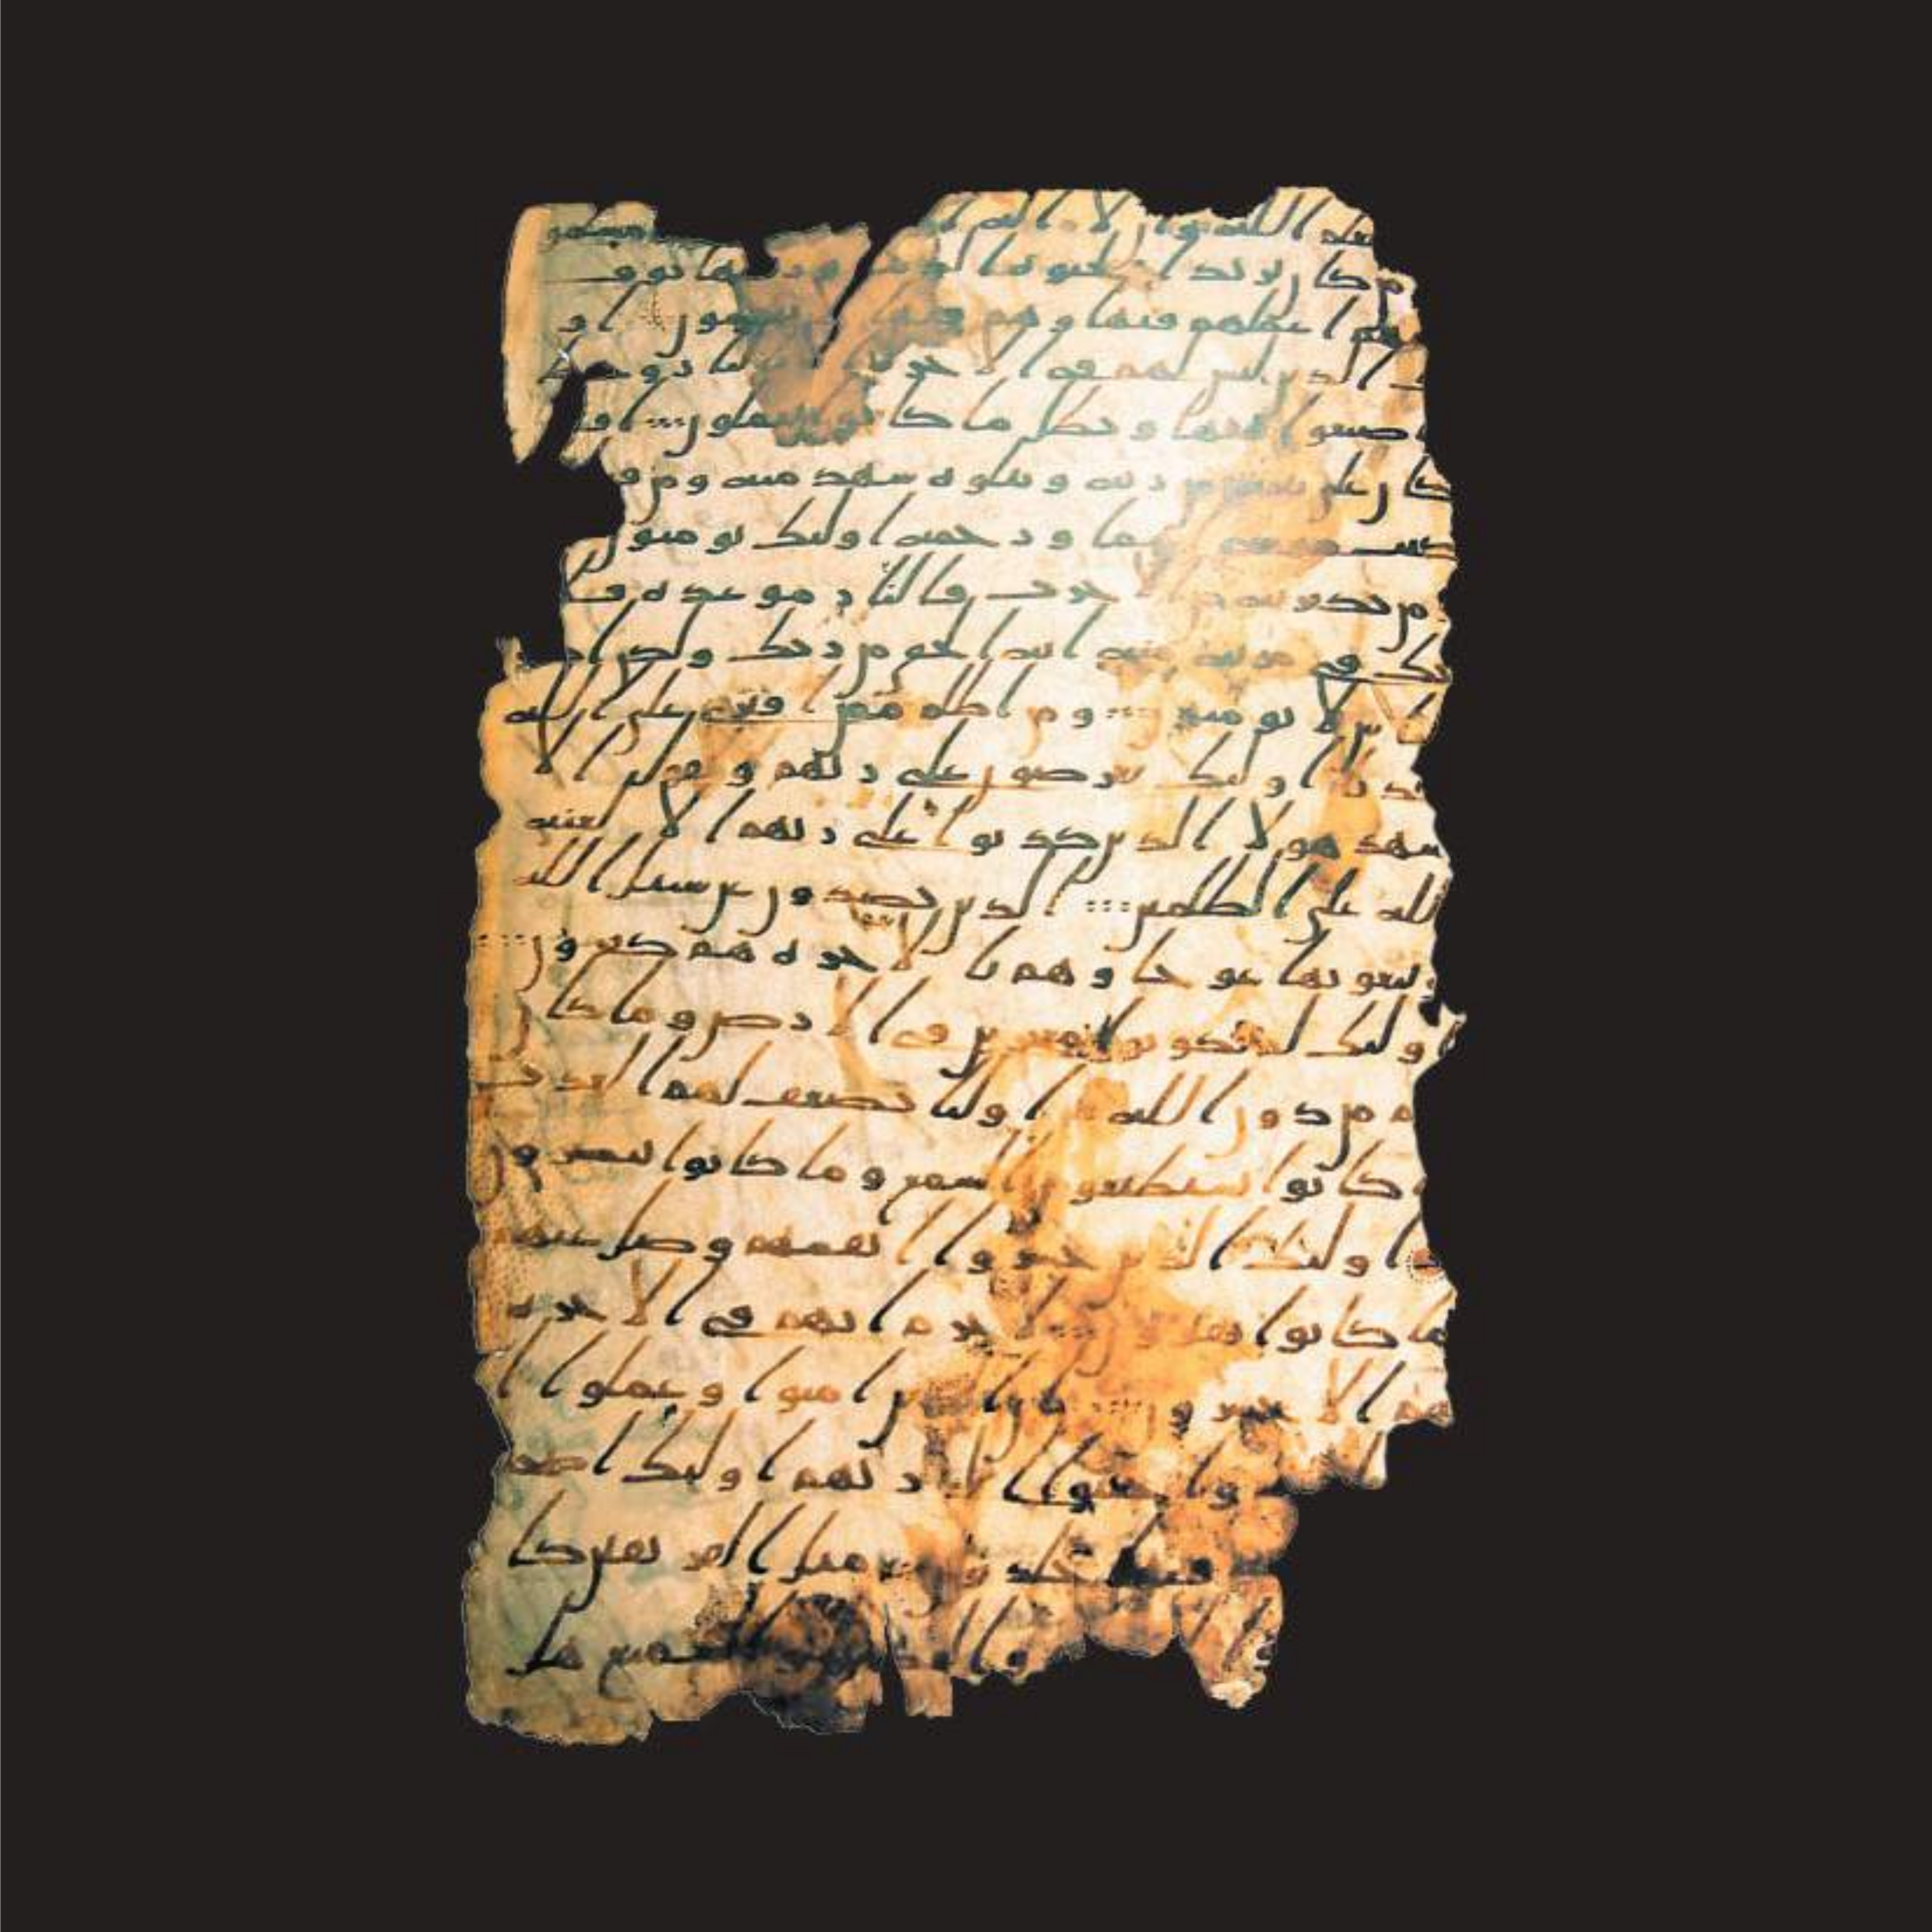 بعلم الله وان لا اله مسلمو
من كان يريد الحيوه الدنيا وزينتها نوف
اليهم اعملهم فيها وهم فيها يبخسون او
الذين ليس لهم في الاخره الا وحبط
صنعوا فيها وبطل ما كانوا يعملون ا
كان على بينه من ربه ويتلوه شهد منه ومن ق
كتب موسى اماما ورحمه اوليك يومنون
من يكفر به من الاحزب فالنار موعده فلا
تك في مريه منه انه الحق من ربك ولكن ا
لا يومنون ومن اظلم ممن افترى على الله
كذبا اوليك يعرضون على ربهم ويقول الا
شهد هولا الذين كذبوا على ربهم الا لعنه
الله على الظلمين الذين يصدون عن سبيل الله
ويبغونها عوجا وهم بالاخره هم كفرون
اوليك لم يكونوا معجزين في الارض وما كان
لهم من دون الله من اوليا يضعف لهم العذب
ما كانوا يستطيعون السمع وما كانوا يبصرون
اوليك الذين خسروا انفسهم وضل عنهم
ما كانوا يفترون لا جرم انهم في الاخره
هم الاخسرون ان الذين امنوا وعملوا ا
واخبتوا الى ربهم اوليك اصحب
فيها خلدون مثل الفريقين كا
والسميع هل